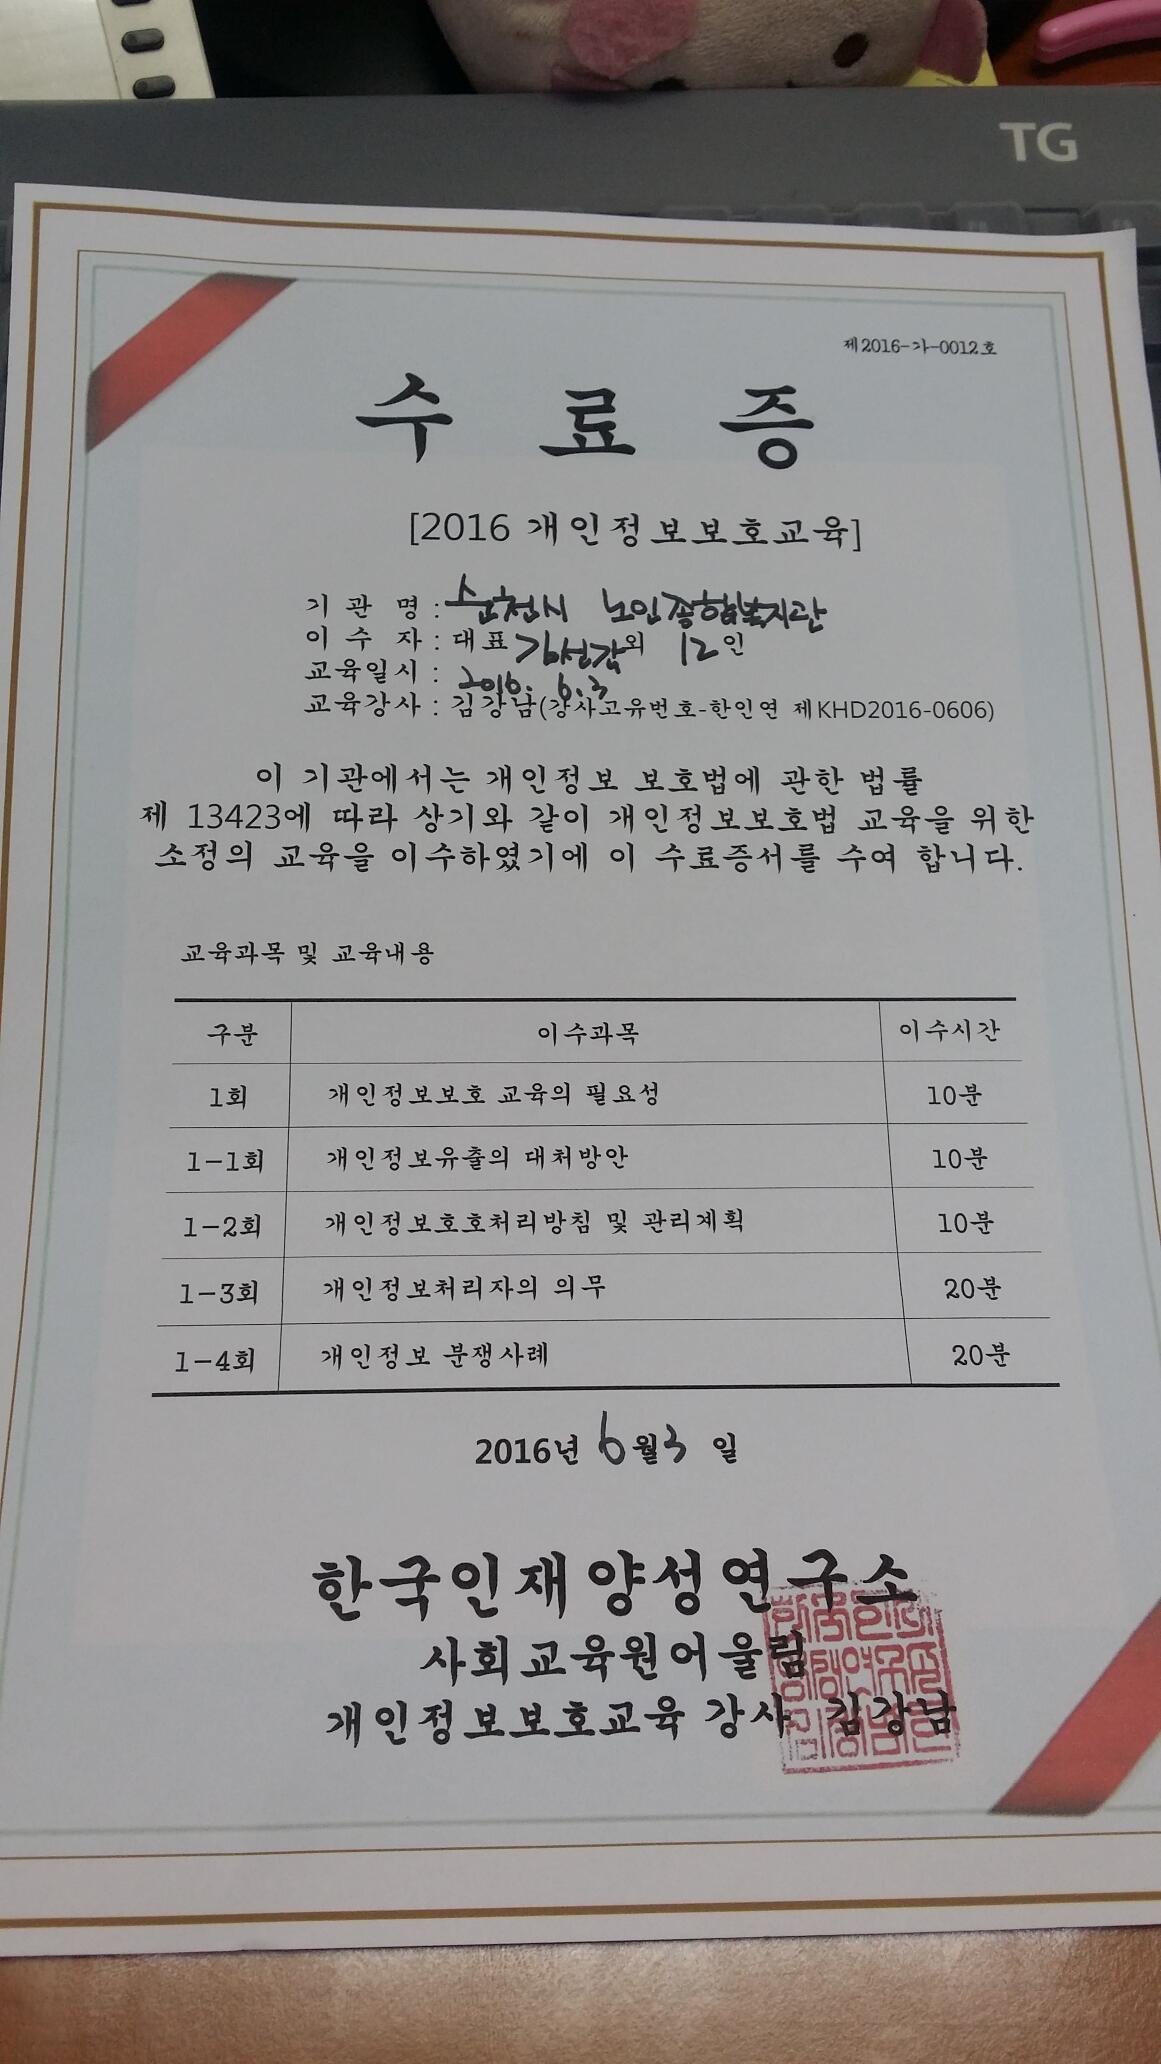 TG
제2016-가-0012호
수 료 증
[2016 개인정보보호교육]
기 관 명 : 순천시 노인종합복지관
이 수 자 : 대표 김선갑외 12인
교육일시 : 2016. 6. 3
교육강사 : 김강남(강사고유번호-한인연 제KHD2016-0606)
이 기관에서는 개인정보 보호법에 관한 법률
제 13423에 따라 상기와 같이 개인정보보호법 교육을 위한
소정의 교육을 이수하였기에 이 수료증서를 수여 합니다.
교육과목 및 교육내용
구분 이수과목 이수시간
1회 개인정보보호 교육의 필요성 10분
1-1회 개인정보유출의 대처방안 10분
1-2회 개인정보호호처리방침 및 관리계획 10분
1-3회 개인정보처리자의 의무 20분
1-4회 개인정보 분쟁사례 20분
2016년 6월 3 일
한국인재양성연구소
사회교육원어울림
개인정보보호교육 강사 김강남